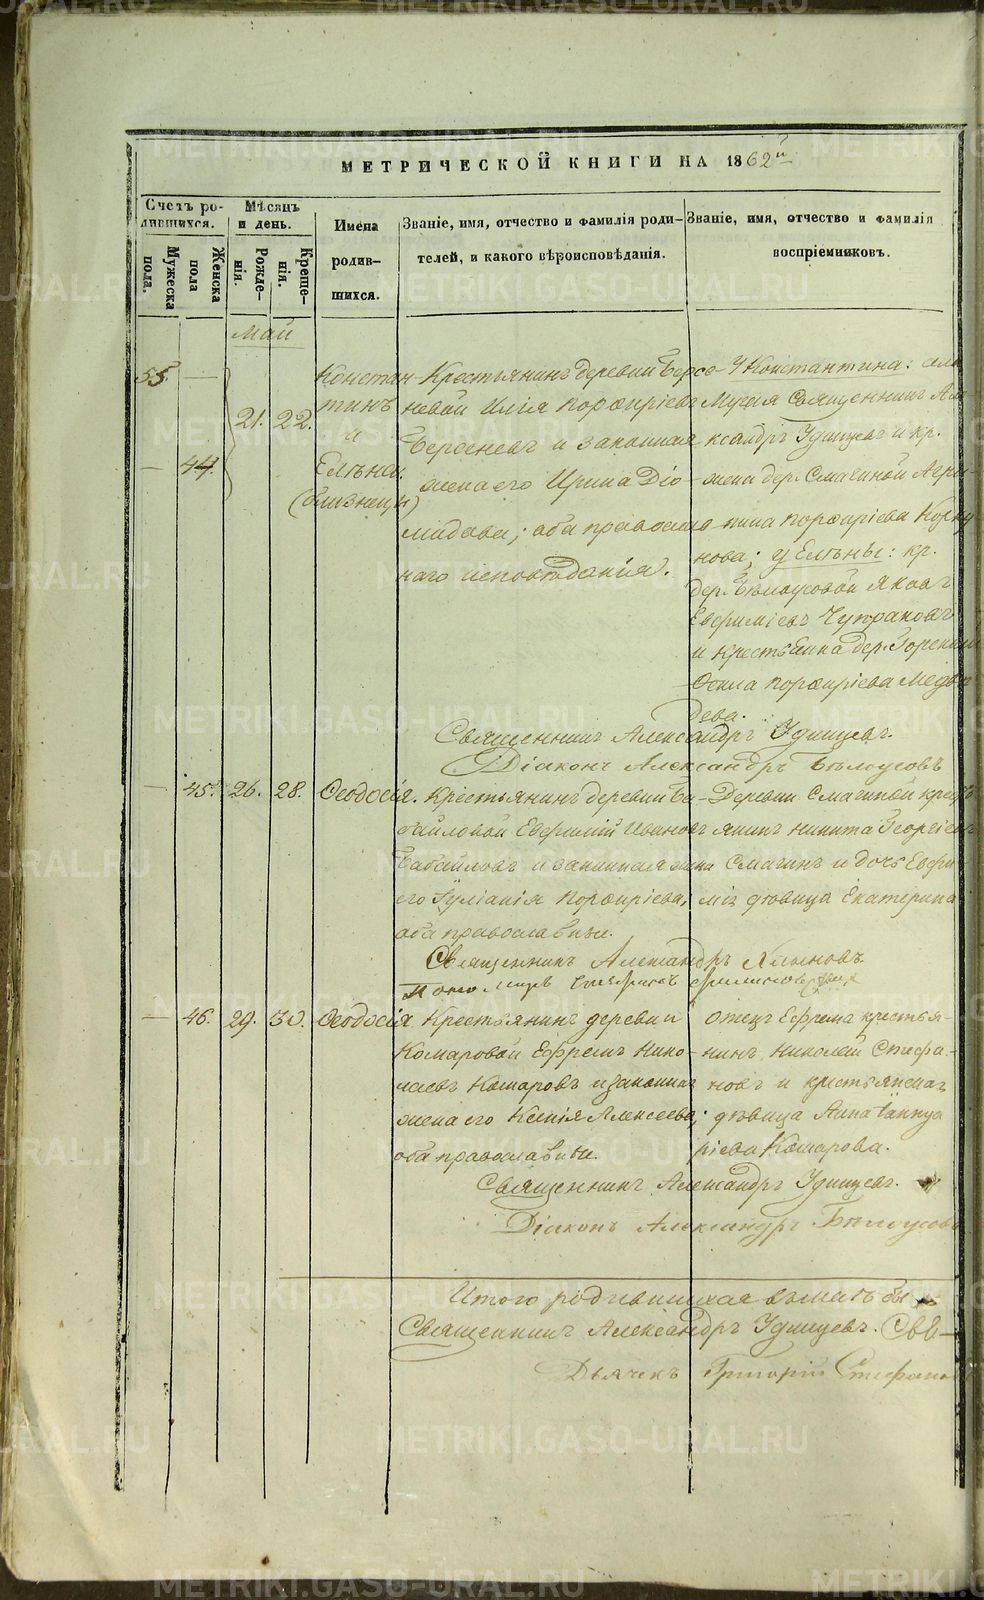 МЕТРИЧЕСКОЙ КНИГИ НА 1862й
Счетъ ро-
дившихся.
Мужеска
пола.
Женска
пола
Мѣсяцъ
и день.
Рожде-
нія.
Креще-
нія.
Имена
родив-
шихся.
Званіе, имя, отчество и фамилія роди-
телей, и какого вѣроисповѣданія.
Званіе, имя, отчество и фамилія
воспріемниковъ.
Май
55.
44
21. 22.
Констан
тинъ
и
Елѣна.
(близнецы)
Крестьянинъ деревни Берсе-
невой Илія Порфиріевъ
Берсеневъ и законная
жена его Ирина Діо-
мидова; оба православ
наго исповѣданія.
У Константина:
Мугая Священникъ Але
ксандръ Удинцевъ и кр.
жена дер. Смагиной
Порфиріева Корку
нова; у Елѣны: кр.
дер. Бѣлоусовой Яковъ
Евфиміевъ Чупраковъ
и крестьянка дер.
Порфиріева Медвѣ
дева.
Священникъ Александръ Удинцевъ.
Діаконъ Александръ Бѣлоусовъ
45. 26. 28. Ѳеодосія.
Крестьянинъ деревни Ба-
байловой Евфимій Ивановъ
Бабайловъ и законная жена
его Іуліанія Порфиріева,
оба православные.
Деревни Смагиной кресть
янинъ Никита Георгіевъ
Смагинъ и дочь Евфи
мія дѣвица Екатерина
Священникъ Александръ Хлыновъ
Пономарь
46. 29. 30. Ѳеодосія
Крестьянинъ деревни
Комаровой Ефремъ Нико-
лаевъ Комаровъ и законная
жена его Ксенія Алексеева;
оба православные.
Отецъ Ефрема крестья-
нинъ Николай Стефа-
новъ и крестьянская
дѣвица Анна Іаннуа
ріева Комарова.
Священникъ Александръ Удинцевъ.
Діаконъ Александръ Бѣлоусовъ
Итого родившихся
Священникъ Александръ Удинцевъ.
Дьячекъ Григорій Стефано
METRIKI.GASO-URAL.RU